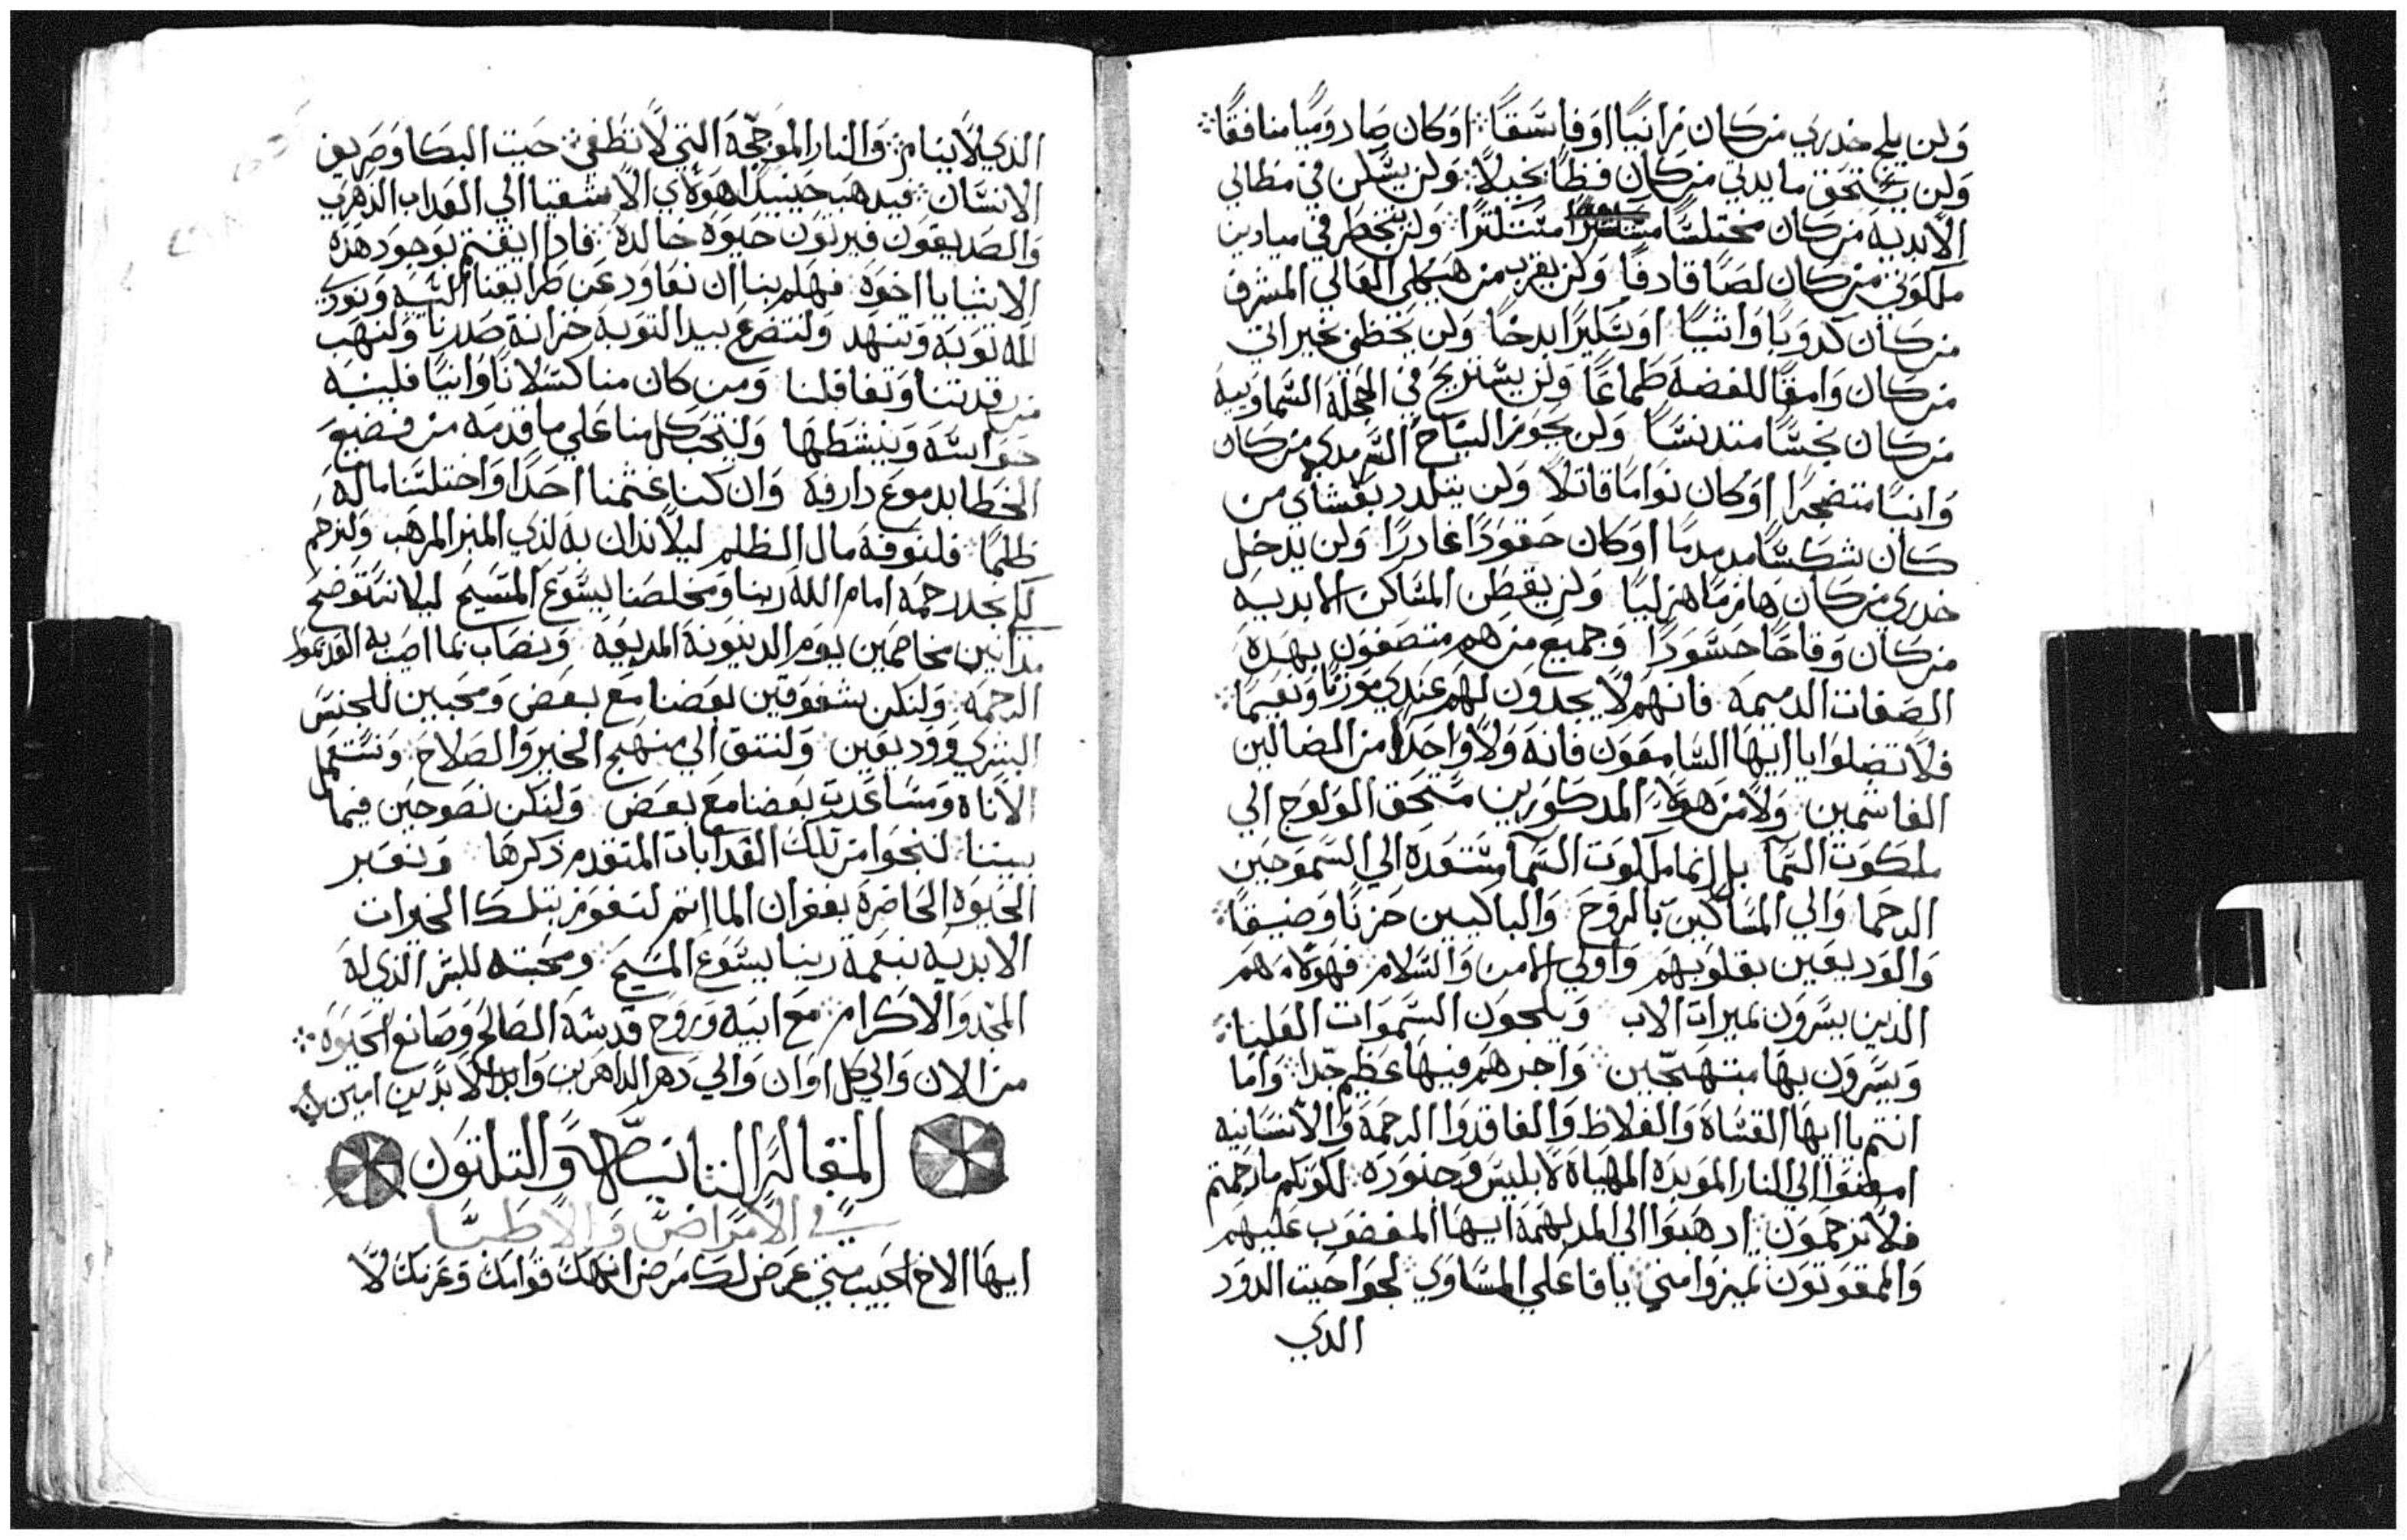 ولن يلج خدري من كان زانيًا او فاسقًا اوكان صادوميًا منافقًا
ولن يستحق ما يدني من كان فظًا بخيلًا ولن يسكن في مظالي
الابدية من كان مختلسًا متتلبًا ولن يخطر في ميادين
ملكوتي من كان لصًا قادفًا ولن يقرب من هيكلي العالي المشرف
من كان كدوبًا واشيًا او سكيرًا ابدخًا ولن يحظى بخيراتي
من كان وامقًا للفضه طماعًا ولن يستريح في الحجلة السماويه
من كان نجسًا متدنسًا ولن يجوز السياح السرمدي من كان
وانيًا متضجرًا او كان نوامًا قاتلًا ولن يتلدد بعشاي من
كان شكسًا مدمدمًا او كان حقودًا غادرًا ولن يدخل
خدري من كان هازمًا هزليًا ولن يقطن المساكن الابديه
من كان وقاحًا حسودًا وجميع من هم متصفون بهده
الصفات الدميمة فانهم لا يجدون لهم عندي موزنًا ونعيمًا
فلا تضلوا يا ايها السامعون فانه ولا واحدًا من الضالين
الغاشمين ولا من هولاء المدكورين مستحق الولوج الي
ملكوت السما بل انما ملكوت السما مستعده الي السموحين
الرحما والي المساكين بالروح والباكيين حزنًا وضيقًا
والوديعين بقلوبهم واولي الامن والسلام فهولاء هم
الذين يسرون بميرات الاب ويلجون السموات العليا
ويسرون بها مبتهجين واجرهم فيها عظيم جدًا واما
انتم يا ايها القساة والغلاظ والفاقدوا الرحمة والانسانيه
امضوا الي النار الموبده المهياه لابليس وجنوده لكونكم ما رحمتم
فلا ترحمون ادهبوا الي المدلهمة ايها المغضوب عليهم
والممقوتون تميزوا مني يا فاعلي المساوي لجوا حيت الدود
الدي
الذي لا ينام والنار الموججة التي لا تطفي حيت البكا وصريف
الاسنان فيدهب حينيدا هولاي الاشقيا الي العداب الدهري
والصديقون فيرتون حيوه خالدة فادا ايقنتم بوجود هده
الاشيا يا اخوه فهلم بنا ان نعاود عن طرايقنا السيه ونودي
لله توبه وتنهد ولنتضرع بيد التوبة خزانة صدرنا ولنهب
من رقدتنا وتغافلنا ومن كان منا كسلانًا وانيًا فلينبه
حواسه وينشطها ولينتحب كل منا علي ما قدمه من فضيع
الخطا بدموع دارفه وان كنا غشمنا احدًا واختلسنا ماله
ظلمًا فلنوفه مال الظلم ليلا ندان به لدي المنبر المرهب ولنرحم
لكي نجد رحمه امام الله ربنا ومخلصنا يسوع المسيح ليلا نتتوضح
مدانين مخاصمين يوم الدينونة المريعه ونصاب بما اصيب به العديموا
الرحمة ولنكن شفوقين بعضنا مع بعض ومحبين للجنس
البشري ووديعين ولنتق الي منهج الخير والصلاح ونستعمل
الاناه ومساعدت بعضنا مع بعض ولنكن نصوحين فيما
بيننا لننجوا من تلك العدابات المتقدم دكرها ونعبر
الحيوه الحاضرة بغفران الماتم لنفوز بتلك الخيرات
الابديه بنعمة ربنا يسوع المسيح ومحبته للبشر الذي له
المجد والاكرام مع ابيه وروح قدسه الصالح وصانع الحيوه
من الان والي كل اوان والي دهر الداهرين وابد الابدين امين
المقالة التانية والتلتون
في الامراض والاطبا
ايها الاخ الحبيب متي عرض لك مرض انهك قوامك وعزتك لا